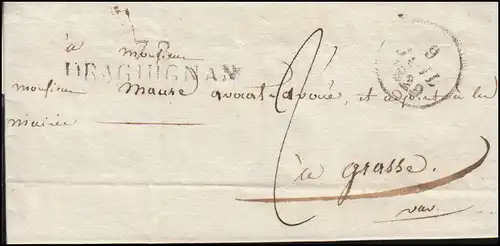 78
DRAGUIGNAN
à monsieur
monsieur Maure avocat avoué, et adjoint à la
mairie
2
à grasse.
var